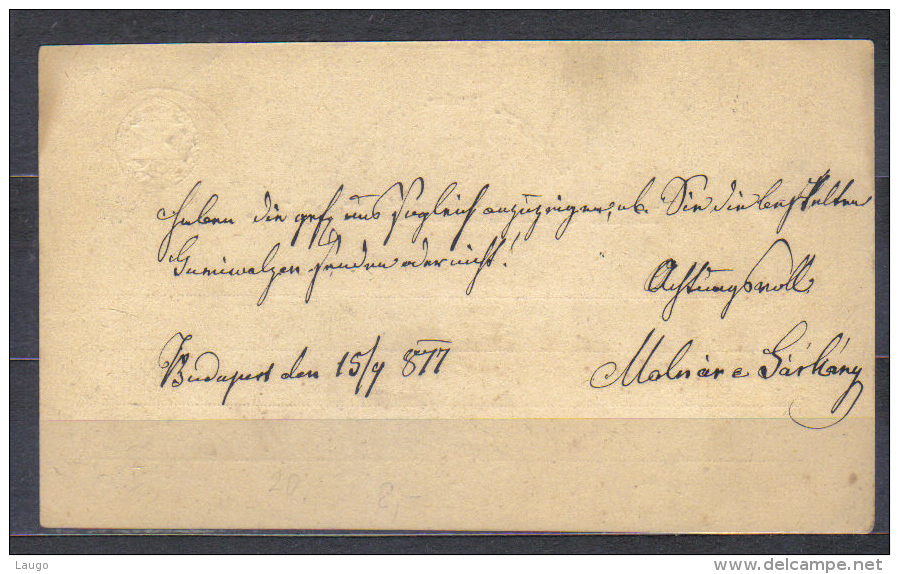 Haben die gefl uns sogleich anzuzeigen, ob Sie die bestellten
Gumiwalzen senden oder nicht!
Achtungsvoll
Budapest den 15/9 877
Molnár e Sárkány
20
2,-
Laugo
www.delcampe.net